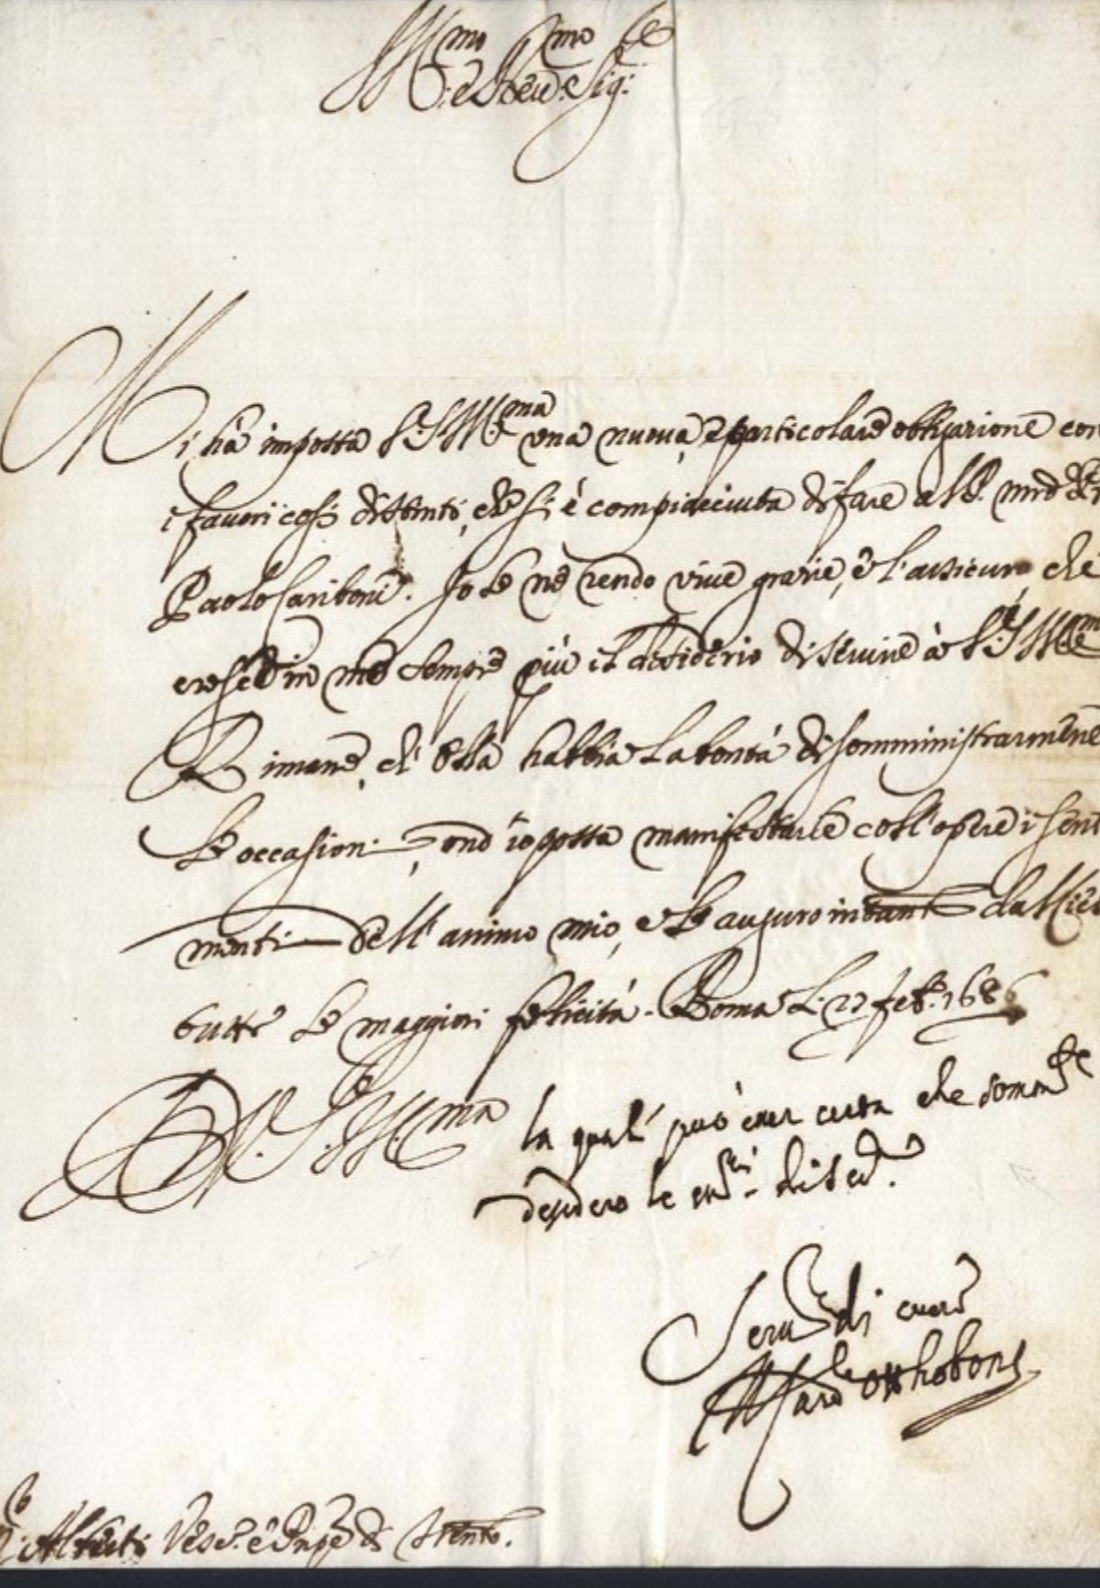 Ill.mo e Rev.mo Sig.re
Mi hà imposta V.S. Ill.ma una nuova, e particolare obligatione con
i favori così distinti, che si è compiaciuta di fare al P. mro
Paolo Cariboni. Io le ne rendo vive gratie, e l'assicuro che
cresce in me sempre più il desiderio di servire à V.S. Ill.ma
Rimane, ch'ella habbia la bontà di somministrarmene
le occasioni, ond'io possa manifestarle coll'opere i senti
menti dell'animo mio, e le auguro intanto dal Ciel
tutte le maggiori felicità. Roma li 23 feb. 1686
D V.S. Ill.ma la qual' può esser certa che somm.te
desidero le di ser.
Serv.re di cuore
Il Card.le Otthoboni
Alberti Vesc.o e Prnpe di Trento.